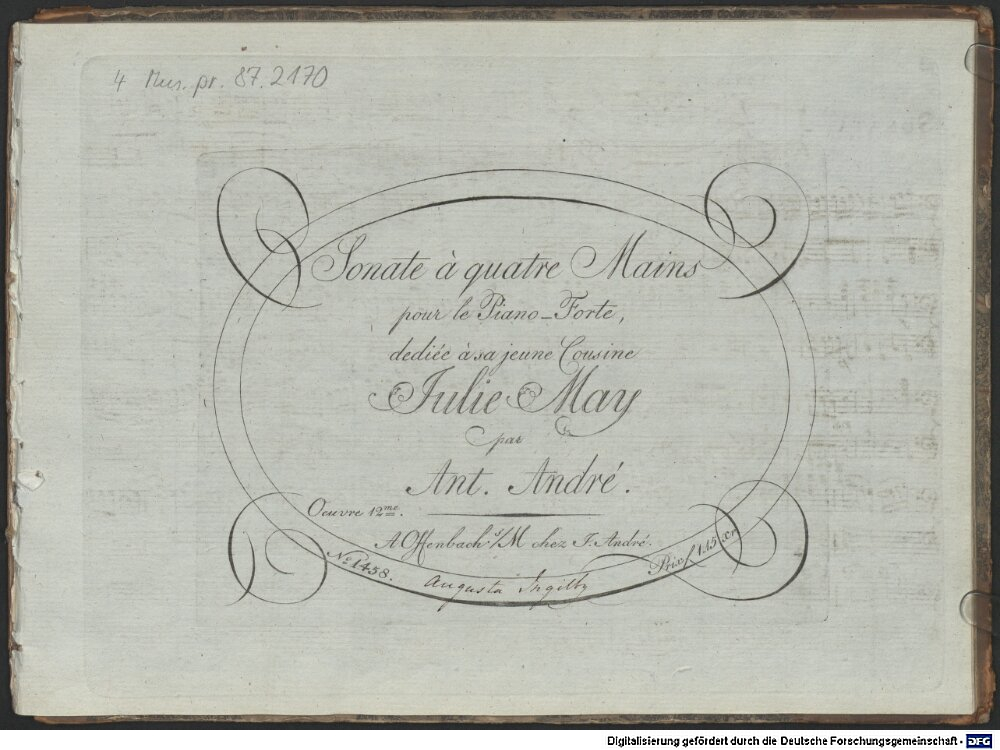 4 Mus. pr. 87.2170
Sonate à quatre Mains
pour le Piano-Forte,
dediée à sa jeune Cousine
Julie May
par
Ant. André.
Oeuvre 12me.
A Offenbach s/M chez J. André.
No. 1458.
Prix f 1.15 Xr
Augusta Ingilby
Digitalisierung gefördert durch die Deutsche Forschungsgemeinschaft - DFG